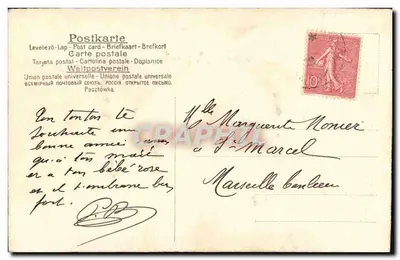 Postkarte
Levelező-Lap - Post card - Briefkaart - Brefkort
Carte postale
Tarjeta postal - Cartolina postale - Dopisnice
Weltpostverein
Union postale universelle - Unione postale universale
ВСЕМИРНЫЙ ПОЧТОВЫЙ СОЮЗЪ. РОССІЯ. ОТКРЫТОЕ ПИСЬМО.
Pocztówka
10
CPAPHIL
Ton tonton te
souhaite une
bonne année
qu'à ton
et a ton bébé rose
et il t'embrasse bien
fort.
Mlle Marguerite Monier
à St Marcel
Marseille banlieue